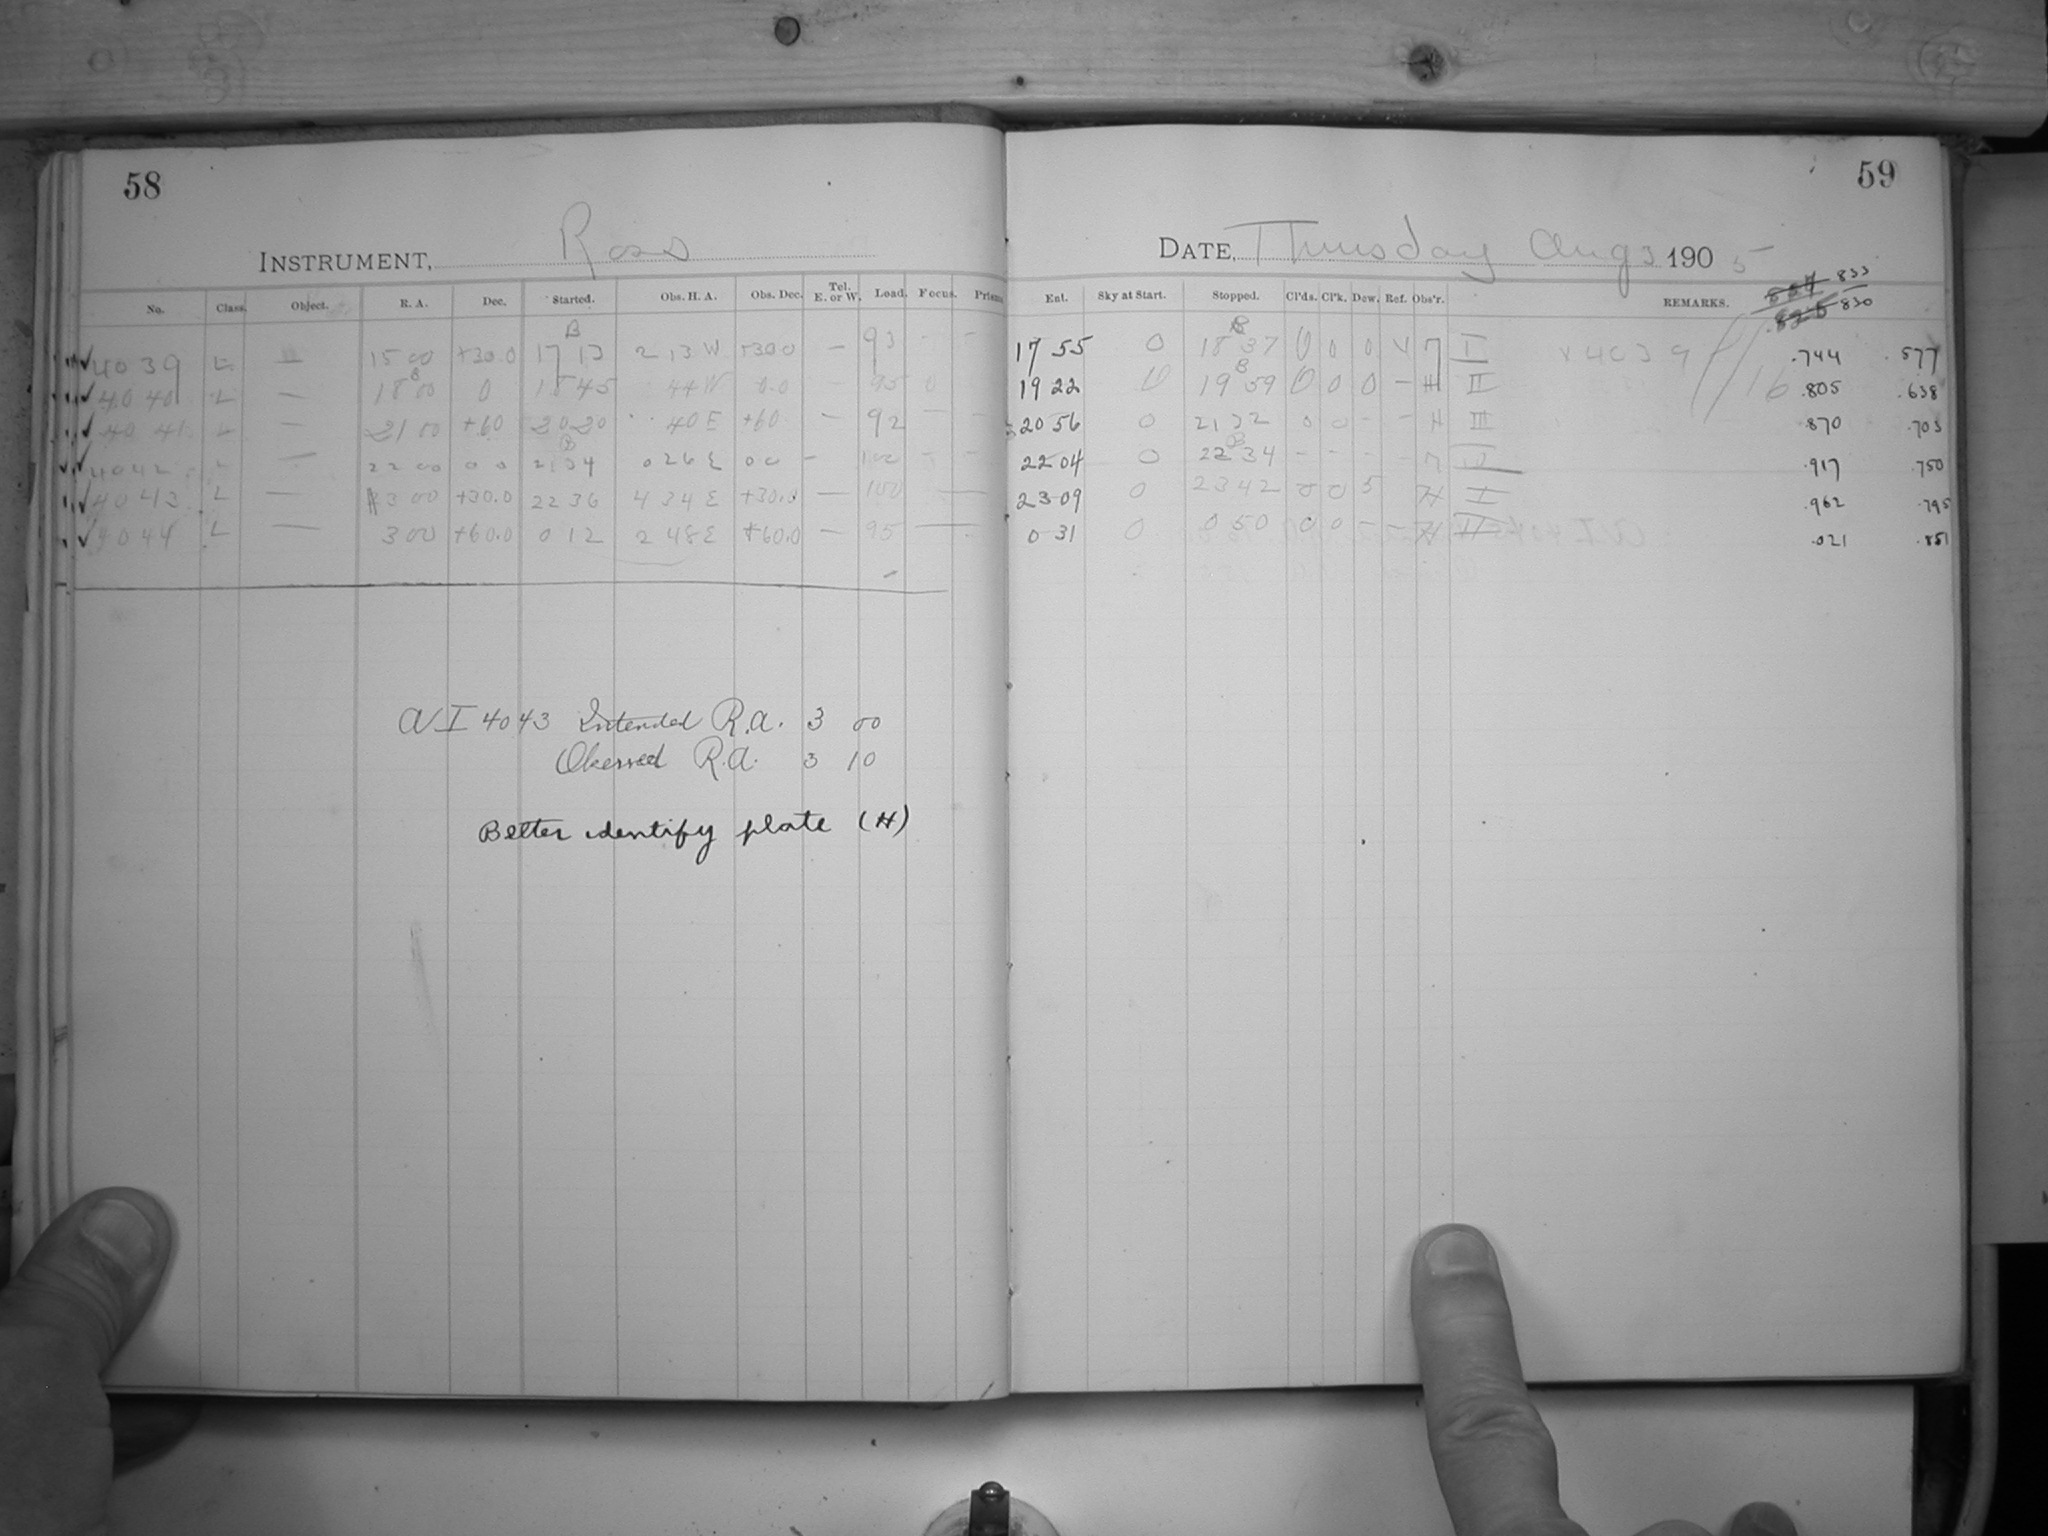 58
59
INSTRUMENT, Ross
DATE, Thursday Aug 3 1905
No. Class. Object. R. A. Dec. Started. Obs. H. A. Obs. Dec. Tel. E. or W. Load. Focus. Prism
Ent. Sky at Start. Stopped. Cl'ds. Cl'k. Dew. Ref. Obs'r. REMARKS.
833
830
B
B
✓ 4039 L — 15 00 +30.0 17 13 2 13 W +30.0 — 93 - - 17 55 0 18 37 0 0 0 V I 4039 .744 .577
B
B
✓ 4040 L — 18 00 0 18 45 44 W 0.0 — 95 0 19 22 0 19 59 0 0 0 — H II 16 .805 .638
✓ 4041 L — 21 00 +60 20 20 40 E +60 — 92 — — 20 56 0 21 32 0 0 - - H III .870 .703
B
B
✓ 4042 L — 22 00 0 0 21 34 0 26 E 0 0 — 100 - - 22 04 0 22 34 - - - - .917 .750
✓ 4043 L — 3 00 +30.0 22 36 4 34 E +30.0 — 100 — 23 09 0 23 42 0 0 5 H I .962 .795
✓ 4044 L — 3 00 +60.0 0 12 2 48 E +60.0 — 95 — 0 31 0 0 50 0 0 - - H II .021 .851
A I 4043 Intended R.A. 3 00
Observed R.A. 3 10
Better identify plate (H)